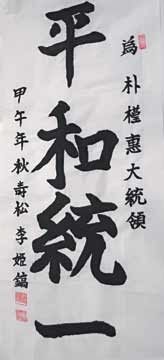 為 朴槿惠大統領
平和統一
甲午年秋 壽松 李姬鎬